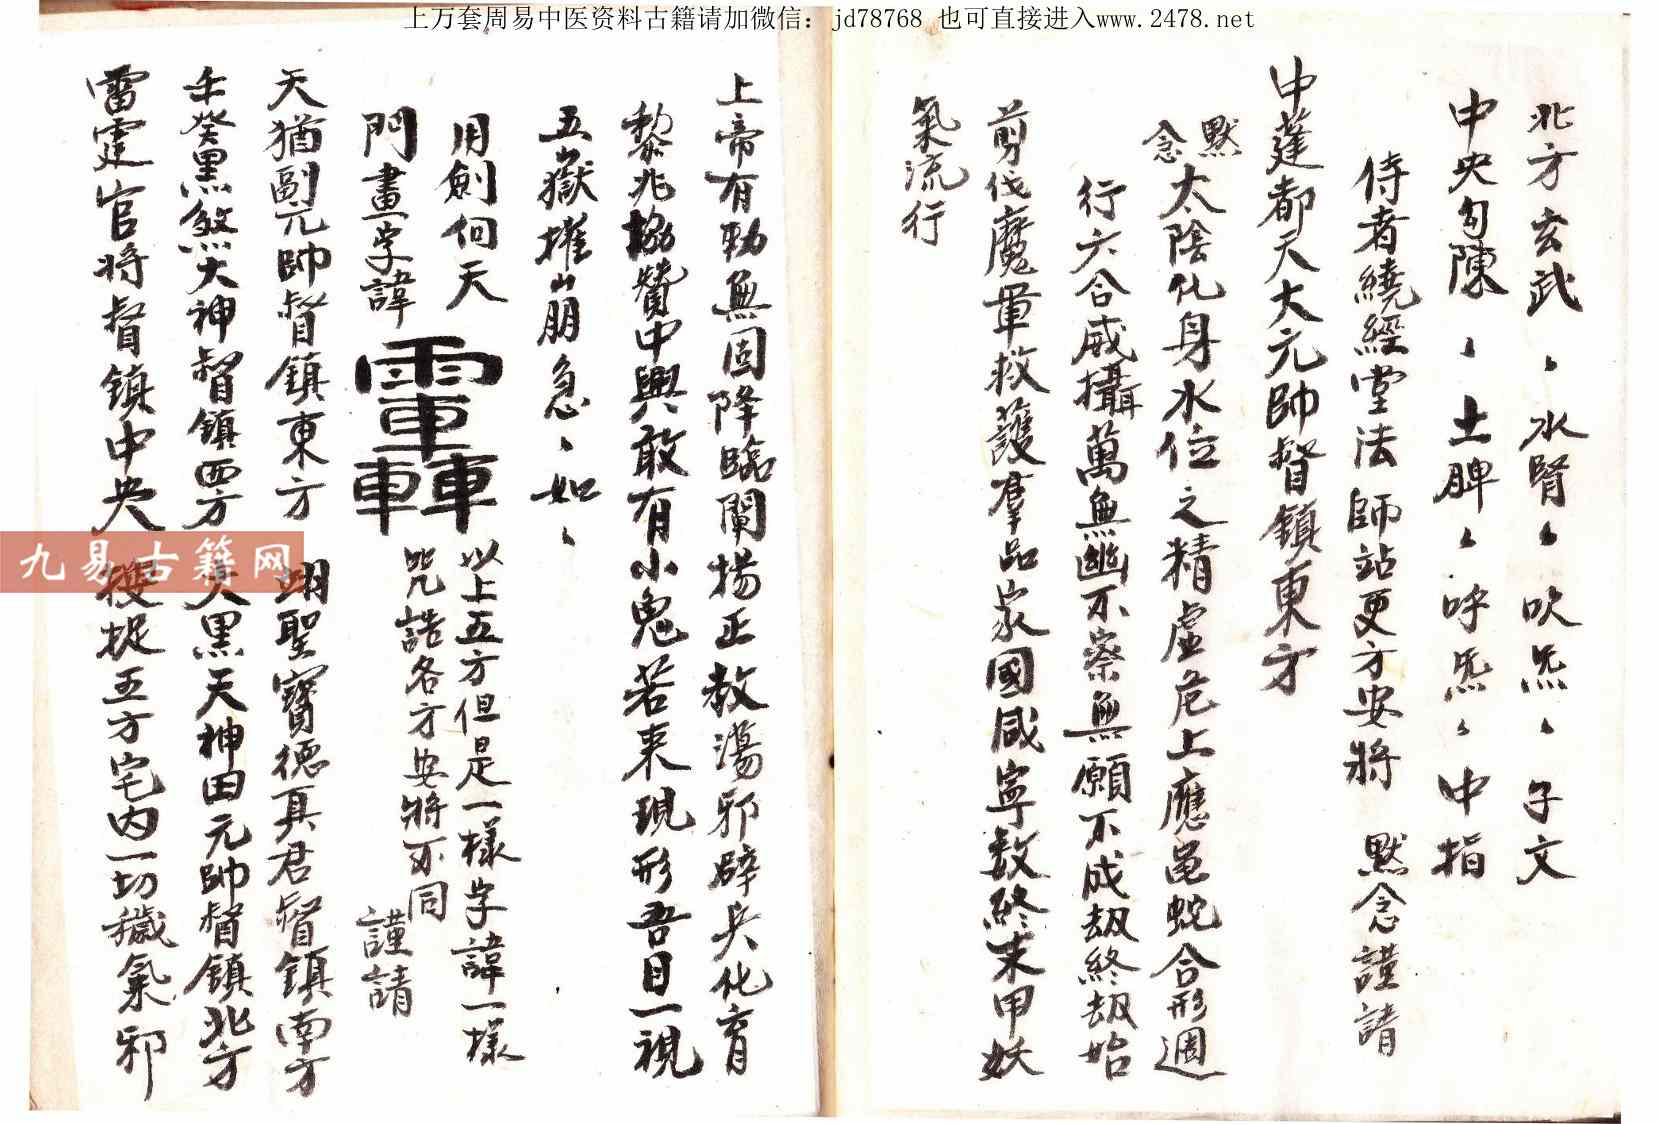 上万套周易中医资料古籍请加微信：jd78768 也可直接进入www.2478.net
北方玄武、、水腎、、吹炁、、子文
中央勾陳、、土脾、、呼炁、、中指
侍者繞經堂法師站更方安將 默念謹請
中蓬都天大元帥督鎮東方
默念
太陰化身水位之精虛危上應龜蛇合形週
行六合威攝萬無幽不察無願不成劫終劫始
剪伐魔軍救護羣品家國咸寧数終末甲妖
氣流行
上帝有勅無固降臨闡揚正教蕩邪辟兵化育
黎兆協贊中興敢有小鬼若来現形吾目一視
五嶽摧山朋急、如、
用劍向天
門畫字諱
以上五方但是一樣字諱一樣
咒誥各方安將不同
謹請
天猶副元帥督鎮東方 翊聖寶德真君督鎮南方
壬癸黑煞大神督鎮西方 大黑天神田元帥督鎮北方
雷霆官将督鎮中央 捉五方宅内一切穢氣邪
九易古籍网